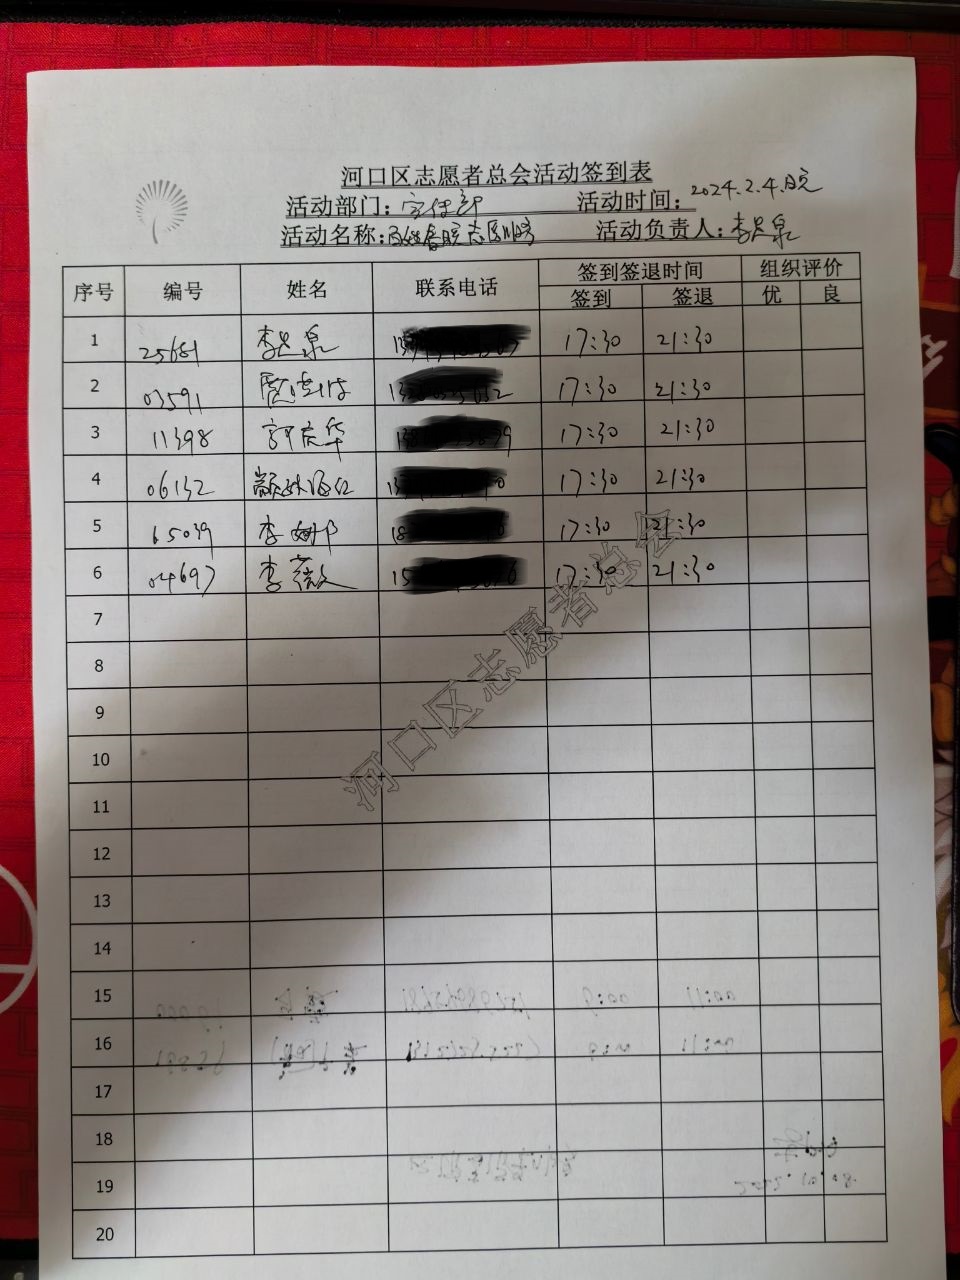 河口区志愿者总会活动签到表
活动部门：宣传部 活动时间：2024.2.4.晚
活动名称：春晚志愿服务 活动负责人：李忠泉
序号 编号 姓名 联系电话 签到签退时间 组织评价
签到 签退 优 良
1 25681 李忠泉 17:30 21:30
2 03591 17:30 21:30
3 11398 郭庆华 17:30 21:30
4 06132 17:30 21:30
5 65039 李 17:30 21:30
6 04697 李薇 17:30 21:30
7
8
9
10
11
12
13
14
15
16
17
18
19
20
河口区志愿者总会